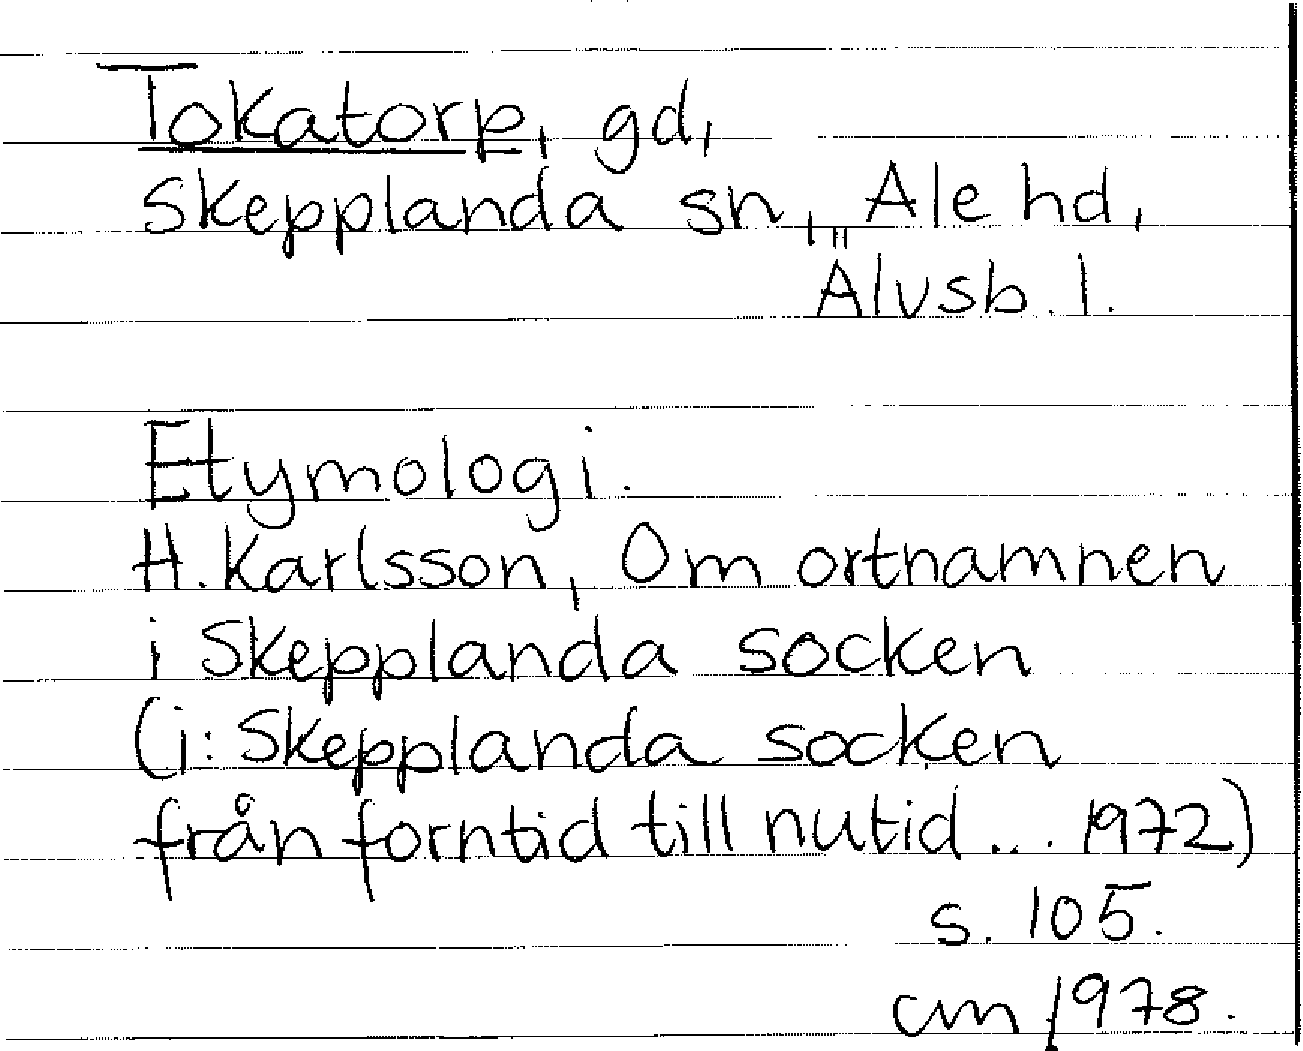 Tokatorp, gd,
Skepplanda sn, Ale hd,
Älvsb. l.
Etymologi.
H. Karlsson, Om ortnamnen
i Skepplanda socken
(i: Skepplanda socken
från forntid till nutid... 1972)
s. 105.
cm 1978.